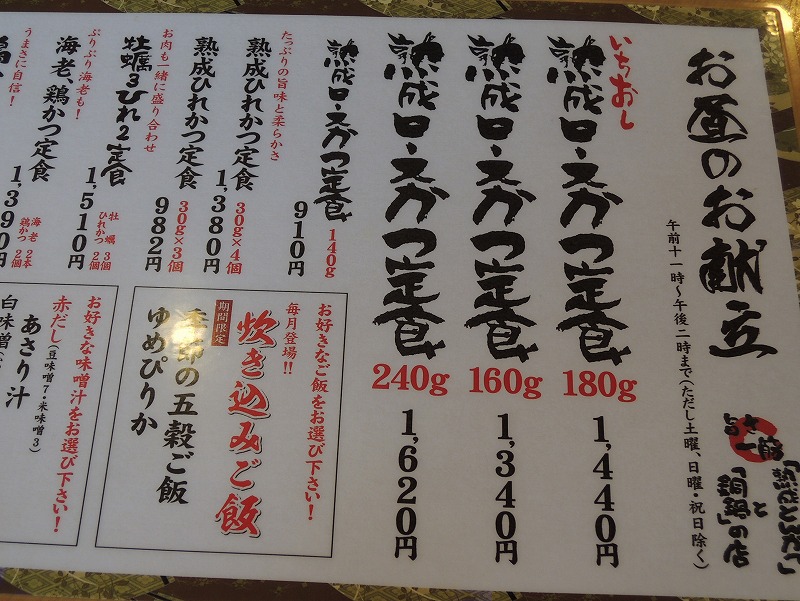 お昼のお献立
午前十一時～午後二時まで(ただし土曜、日曜・祝日除く)
旨さ一筋
「熟成とんかつ」
と
「銅鍋」の店
いちおし
熟成ロースかつ定食
180g
1,440円
熟成ロースかつ定食
160g
1,340円
熟成ロースかつ定食
240g
1,620円
熟成ロースかつ定食
140g
910円
たっぷりの旨味と柔らかさ
熟成ひれかつ定食
30g×4個
1,380円
熟成ひれかつ定食
30g×3個
982円
お肉も一緒に盛り合わせ
牡蠣3ひれ2定食
牡蠣 3個
ひれかつ 2個
1,510円
ぷりぷり海老も!
海老、鶏かつ定食
海老 2本
鶏かつ 2個
1,390円
うまさに自信!
お好きなご飯をお選び下さい!
毎月登場!!
期間限定
炊き込みご飯
季節の五穀ご飯
ゆめぴりか
お好きな味噌汁をお選び下さい!
赤だし(豆味噌7・米味噌3)
あさり汁
白味噌